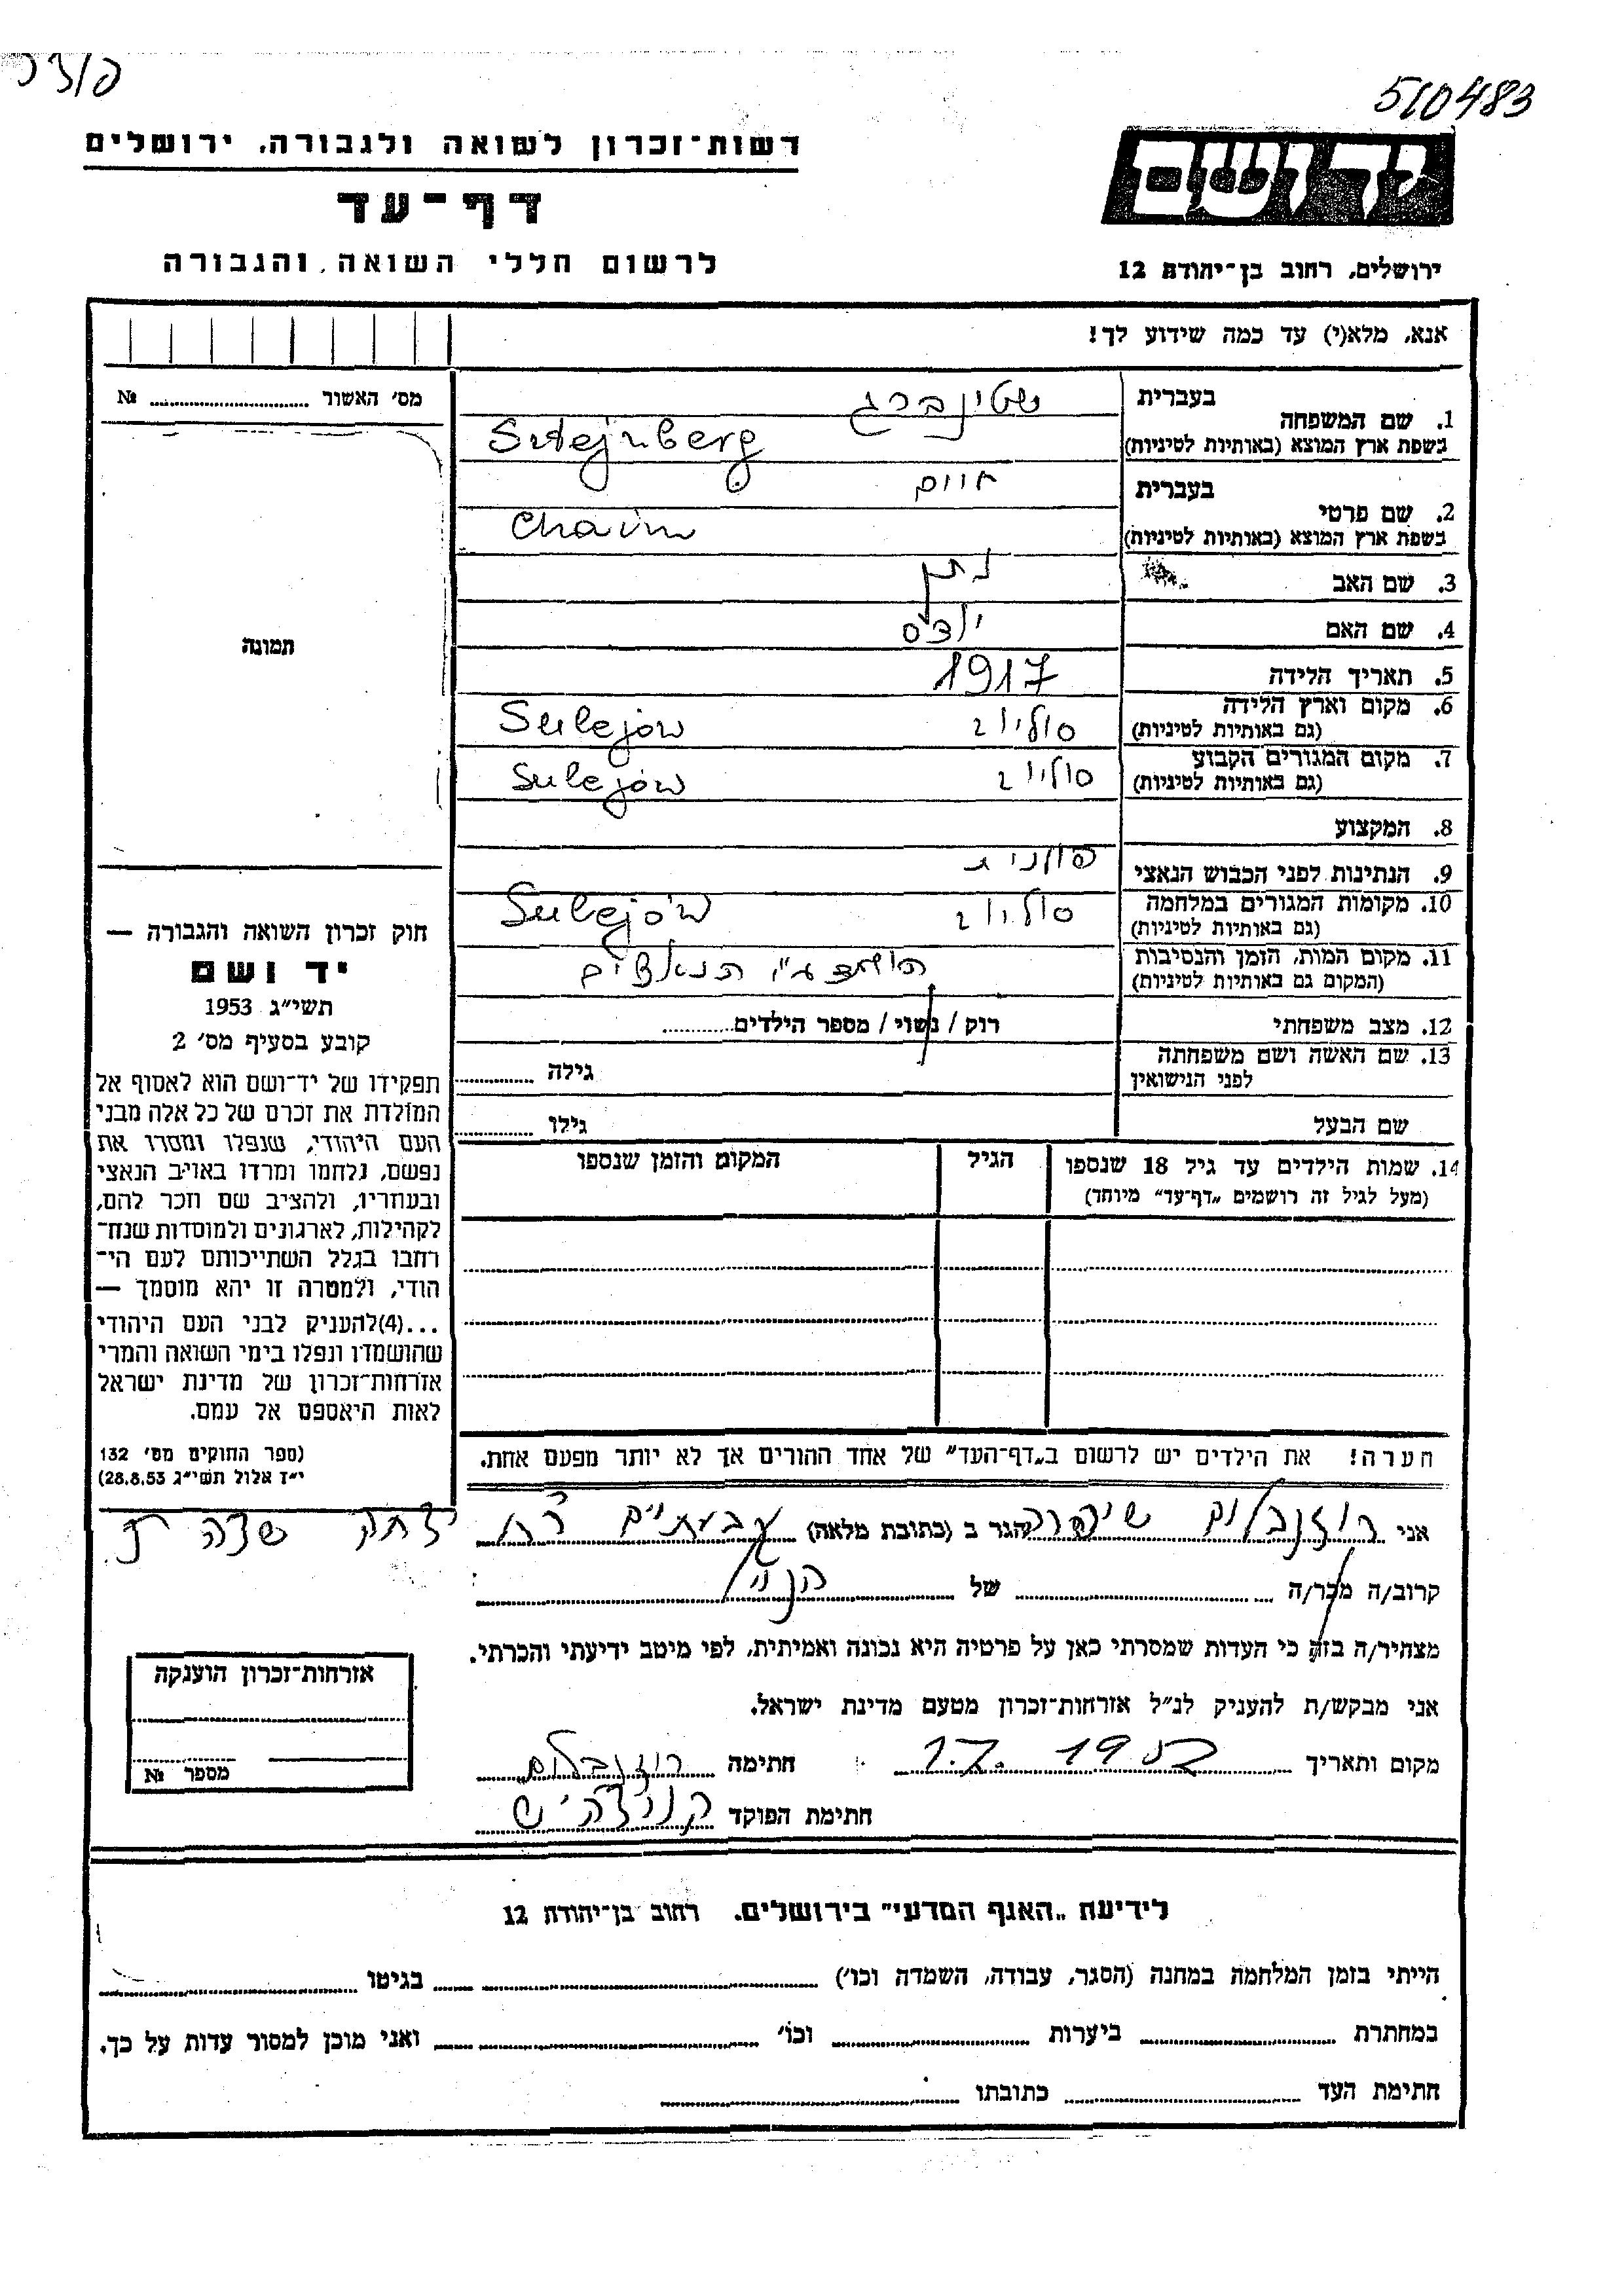 510483
רשות־זכרון לשואה ולגבורה, ירושלים
דף־עד
לרשום חללי השואה והגבורה
יד ושם
ירושלים, רחוב בן־יהודה 12
אנא, מלא(י) עד כמה שידוע לך!
מס׳ האשור ........ №
1. שם המשפחה בעברית שטינברג
בשפת ארץ המוצא (באותיות לטיניות) Sztejnberg
2. שם פרטי בעברית חיים
בשפת ארץ המוצא (באותיות לטיניות) Chaim
3. שם האב נתן
4. שם האם
5. תאריך הלידה 1917
6. מקום וארץ הלידה (גם באותיות לטיניות) סוליוב Sulejów
7. מקום המגורים הקבוע (גם באותיות לטיניות) סוליוב Sulejów
8. המקצוע
9. הנתינות לפני הכבוש הנאצי פולנית
10. מקומות המגורים במלחמה (גם באותיות לטיניות) סוליוב Sulejów
11. מקום המות, הזמן והנסיבות (המקום גם באותיות לטיניות) הושמד ע״י הנאצים
12. מצב משפחתי רוק / נשוי / מספר הילדים........
13. שם האשה ושם משפחתה לפני הנישואין גילה ........
שם הבעל גילו ........
14. שמות הילדים עד גיל 18 שנספו הגיל המקום והזמן שנספו
(מעל לגיל זה רושמים „דף־עד״ מיוחד)
הערה! את הילדים יש לרשום ב„דף־העד״ של אחד ההורים אך לא יותר מפעם אחת.
תמונה
חוק זכרון השואה והגבורה —
יד ושם
תשי״ג 1953
קובע בסעיף מס׳ 2
תפקידו של יד־ושם הוא לאסוף אל
המולדת את זכרם של כל אלה מבני
העם היהודי, שנפלו ומסרו את
נפשם, נלחמו ומרדו באויב הנאצי
ובעוזריו, ולהציב שם וזכר להם,
לקהילות, לארגונים ולמוסדות שנח־
רבו בגלל השתייכותם לעם הי־
הודי, ולמטרה זו יהא מוסמך —
...(4)להעניק לבני העם היהודי
שהושמדו ונפלו בימי השואה והמרי
אזרחות־זכרון של מדינת ישראל
לאות היאספם אל עמם.
(ספר החוקים מס׳ 132
י״ד אלול תשי״ג 28.8.53)
אני רוזנבלום שיפרה הגר ב (כתובת מלאה) גבעתיים רח יצחק שדה
קרוב/ה מכר/ה ........ של הנ״ל
מצהיר/ה בזה כי העדות שמסרתי כאן על פרטיה היא נכונה ואמיתית, לפי מיטב ידיעתי והכרתי.
אני מבקש/ת להעניק לנ״ל אזרחות־זכרון מטעם מדינת ישראל.
מקום ותאריך ........ חתימה רוזנבלום
חתימת הפוקד
אזרחות־זכרון הוענקה
מספר №
לידיעת „האגף המדעי״ בירושלים. רחוב בן־יהודה 12
הייתי בזמן המלחמה במחנה (הסגר, עבודה, השמדה וכו׳) ........ בגיטו ........
במחתרת ........ ביערות ........ וכו׳ ........ ואני מוכן למסור עדות על כך.
חתימת העד ........ כתובתו ........